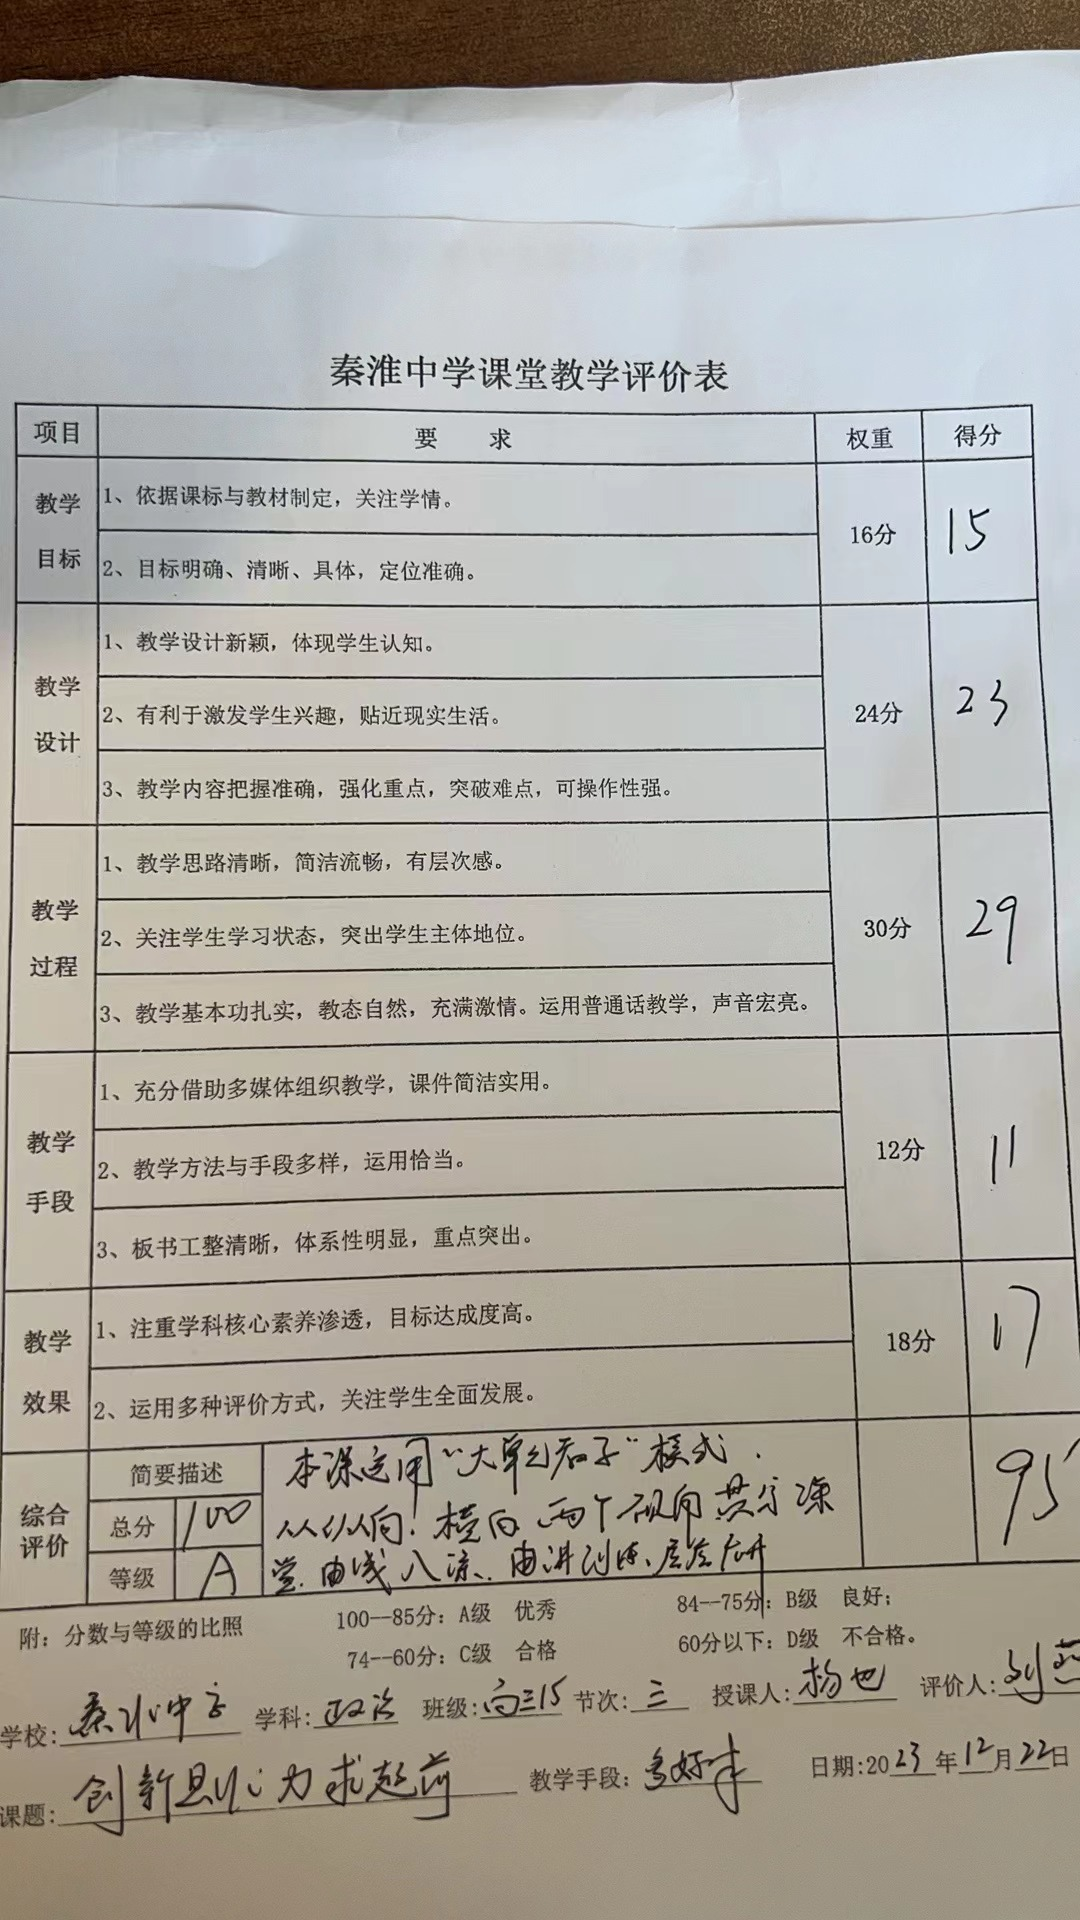 秦淮中学课堂教学评价表
项目 要 求 权重 得分
教学目标 1、依据课标与教材制定，关注学情。 16分 15
2、目标明确、清晰、具体，定位准确。
教学设计 1、教学设计新颖，体现学生认知。 24分 23
2、有利于激发学生兴趣，贴近现实生活。
3、教学内容把握准确，强化重点，突破难点，可操作性强。
教学过程 1、教学思路清晰，简洁流畅，有层次感。 30分 29
2、关注学生学习状态，突出学生主体地位。
3、教学基本功扎实，教态自然，充满激情。运用普通话教学，声音宏亮。
教学手段 1、充分借助多媒体组织教学，课件简洁实用。 12分 11
2、教学方法与手段多样，运用恰当。
3、板书工整清晰，体系性明显，重点突出。
教学效果 1、注重学科核心素养渗透，目标达成度高。 18分 17
2、运用多种评价方式，关注学生全面发展。
综合评价 简要描述 本课运用“大单元 ”模式. 95
总分 100 从纵向！横向 两个视角 课
等级 A 堂.由浅入深.由讲到练、
附：分数与等级的比照 100--85分：A级 优秀 84--75分：B级 良好；
74--60分：C级 合格 60分以下：D级 不合格。
学校：秦淮中学 学科：政治 班级：高三15 节次：三 授课人：杨也 评价人：刘
课题：创新思维 力求超前 教学手段：多媒体 日期：2023年12月22日